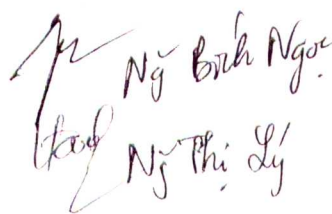 Ng̃ Bích Ngọc
Ng̃ Thị Lý